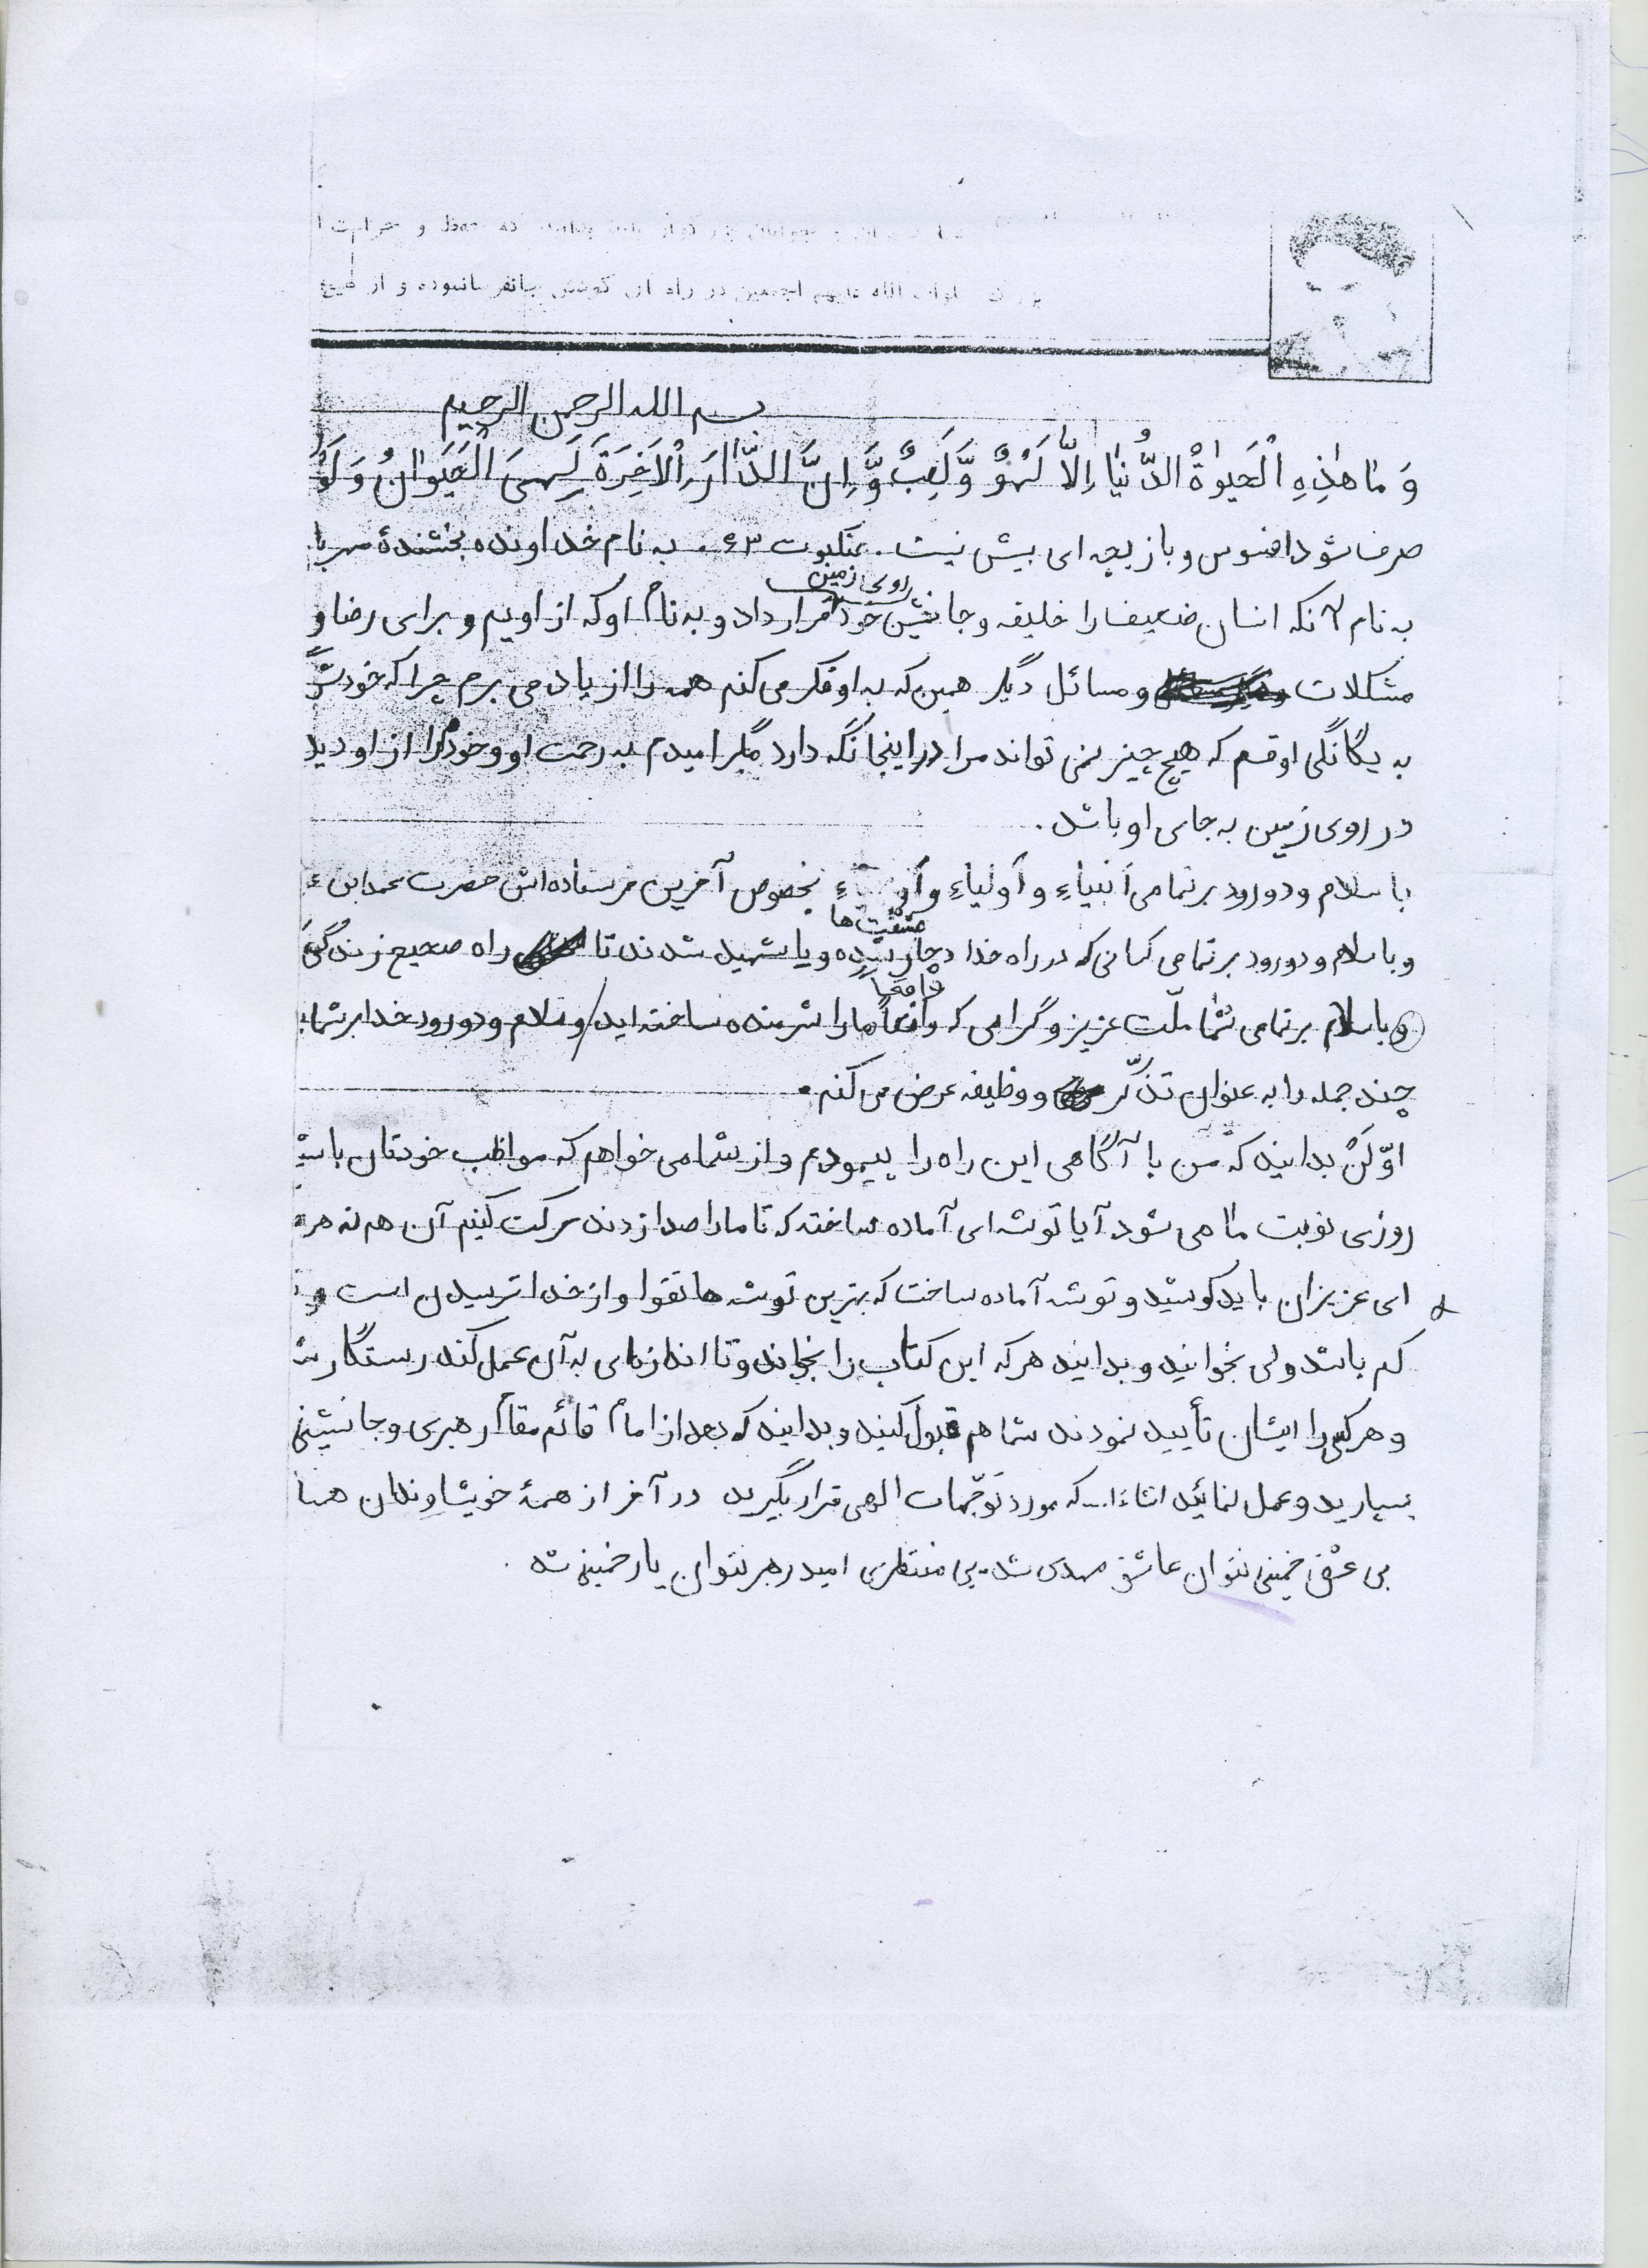 علیهم اجمعین در راه آن کوشش جانفرسا نموده و از هیچ
بسم الله الرحمن الرحیم
وَ مٰا هٰذِهِ الْحَیٰوةُ الدُّنْیٰا اِلاّٰ لَهْوٌ وَّ لَعِبٌ وَّ اِنَّ الدّٰارَ الْاٰخِرَةَ لَهِیَ الْحَیَوٰانُ وَ لَوْ
صرف شود افسوس و بازیچه ای بیش نیست. عنکبوت ۶۳. به نام خداونده بخشندهٔ مهربا
به نام آنکه انسان ضعیف را خلیفه و جانشین خود روی زمین قرار داد و به نام او که از اویم و برای رضا و
مشکلات و مسائل دیگر همین که به او فکر می کنم همه را از یاد می برم چرا که خودش
به یگانگی او قسم که هیچ چیز نمی تواند مرا در اینجا نگه دارد مگر امیدم به رحمت او و خودم را از او دید
در روی زمین به جای او باشد.
با سلام و دورود بر تمامی أنبیاءِ و أولیاءِ و بخصوص آخرین فرستاده اش حضرت محمد ابن
و با سلام و دورود بر تمامی کسانی که در راه خدا دچار مشقّت ها شده و یا شهید شدند تا راه صحیح زندگی
و با سلام بر تمامی شما ملّت عزیز و گرامی که واقعاً واقعاً ما را شرمنده ساخته اید/ و سلام و دورود خدا بر شما
چند جمله را به عنوان تذکّر و وظیفه عرض می کنم.
اوّلاً بدانید که من با آگاهی این راه را پیمودم و از شما می خواهم که مواظب خودتان باش
روزی نوبت ما می شود آیا توشه ای آماده ساخته که تا ما را صدا زدند حرکت کنیم آن هم نه هر
ای عزیزان باید کوشید و توشه آماده ساخت که بهترین توشه ها تقوا و از خدا ترسیدن است و
کم باشد ولی بخوانید و بدانید هر که این کتاب را بخواند و تا اندازه ای به آن عمل کند رستگار ش
و هر کس را ایشان تأیید نمودند شما هم قبول کنید و بدانید که بعد از امام قائم مقام رهبری و جانشینی
بسپارید و عمل نمائید انشاءا... که مورد توجّهات الهی قرار بگیرید در آخر از همهٔ خویشاوندان همسا
بی عشق خمینی نتوان عاشق مهدی شد بی منتظری امید رهبر نتوان یار خمینی شد